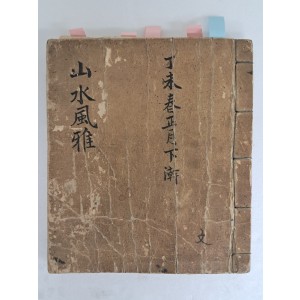 山水風雅
丁未春正月下澣
文